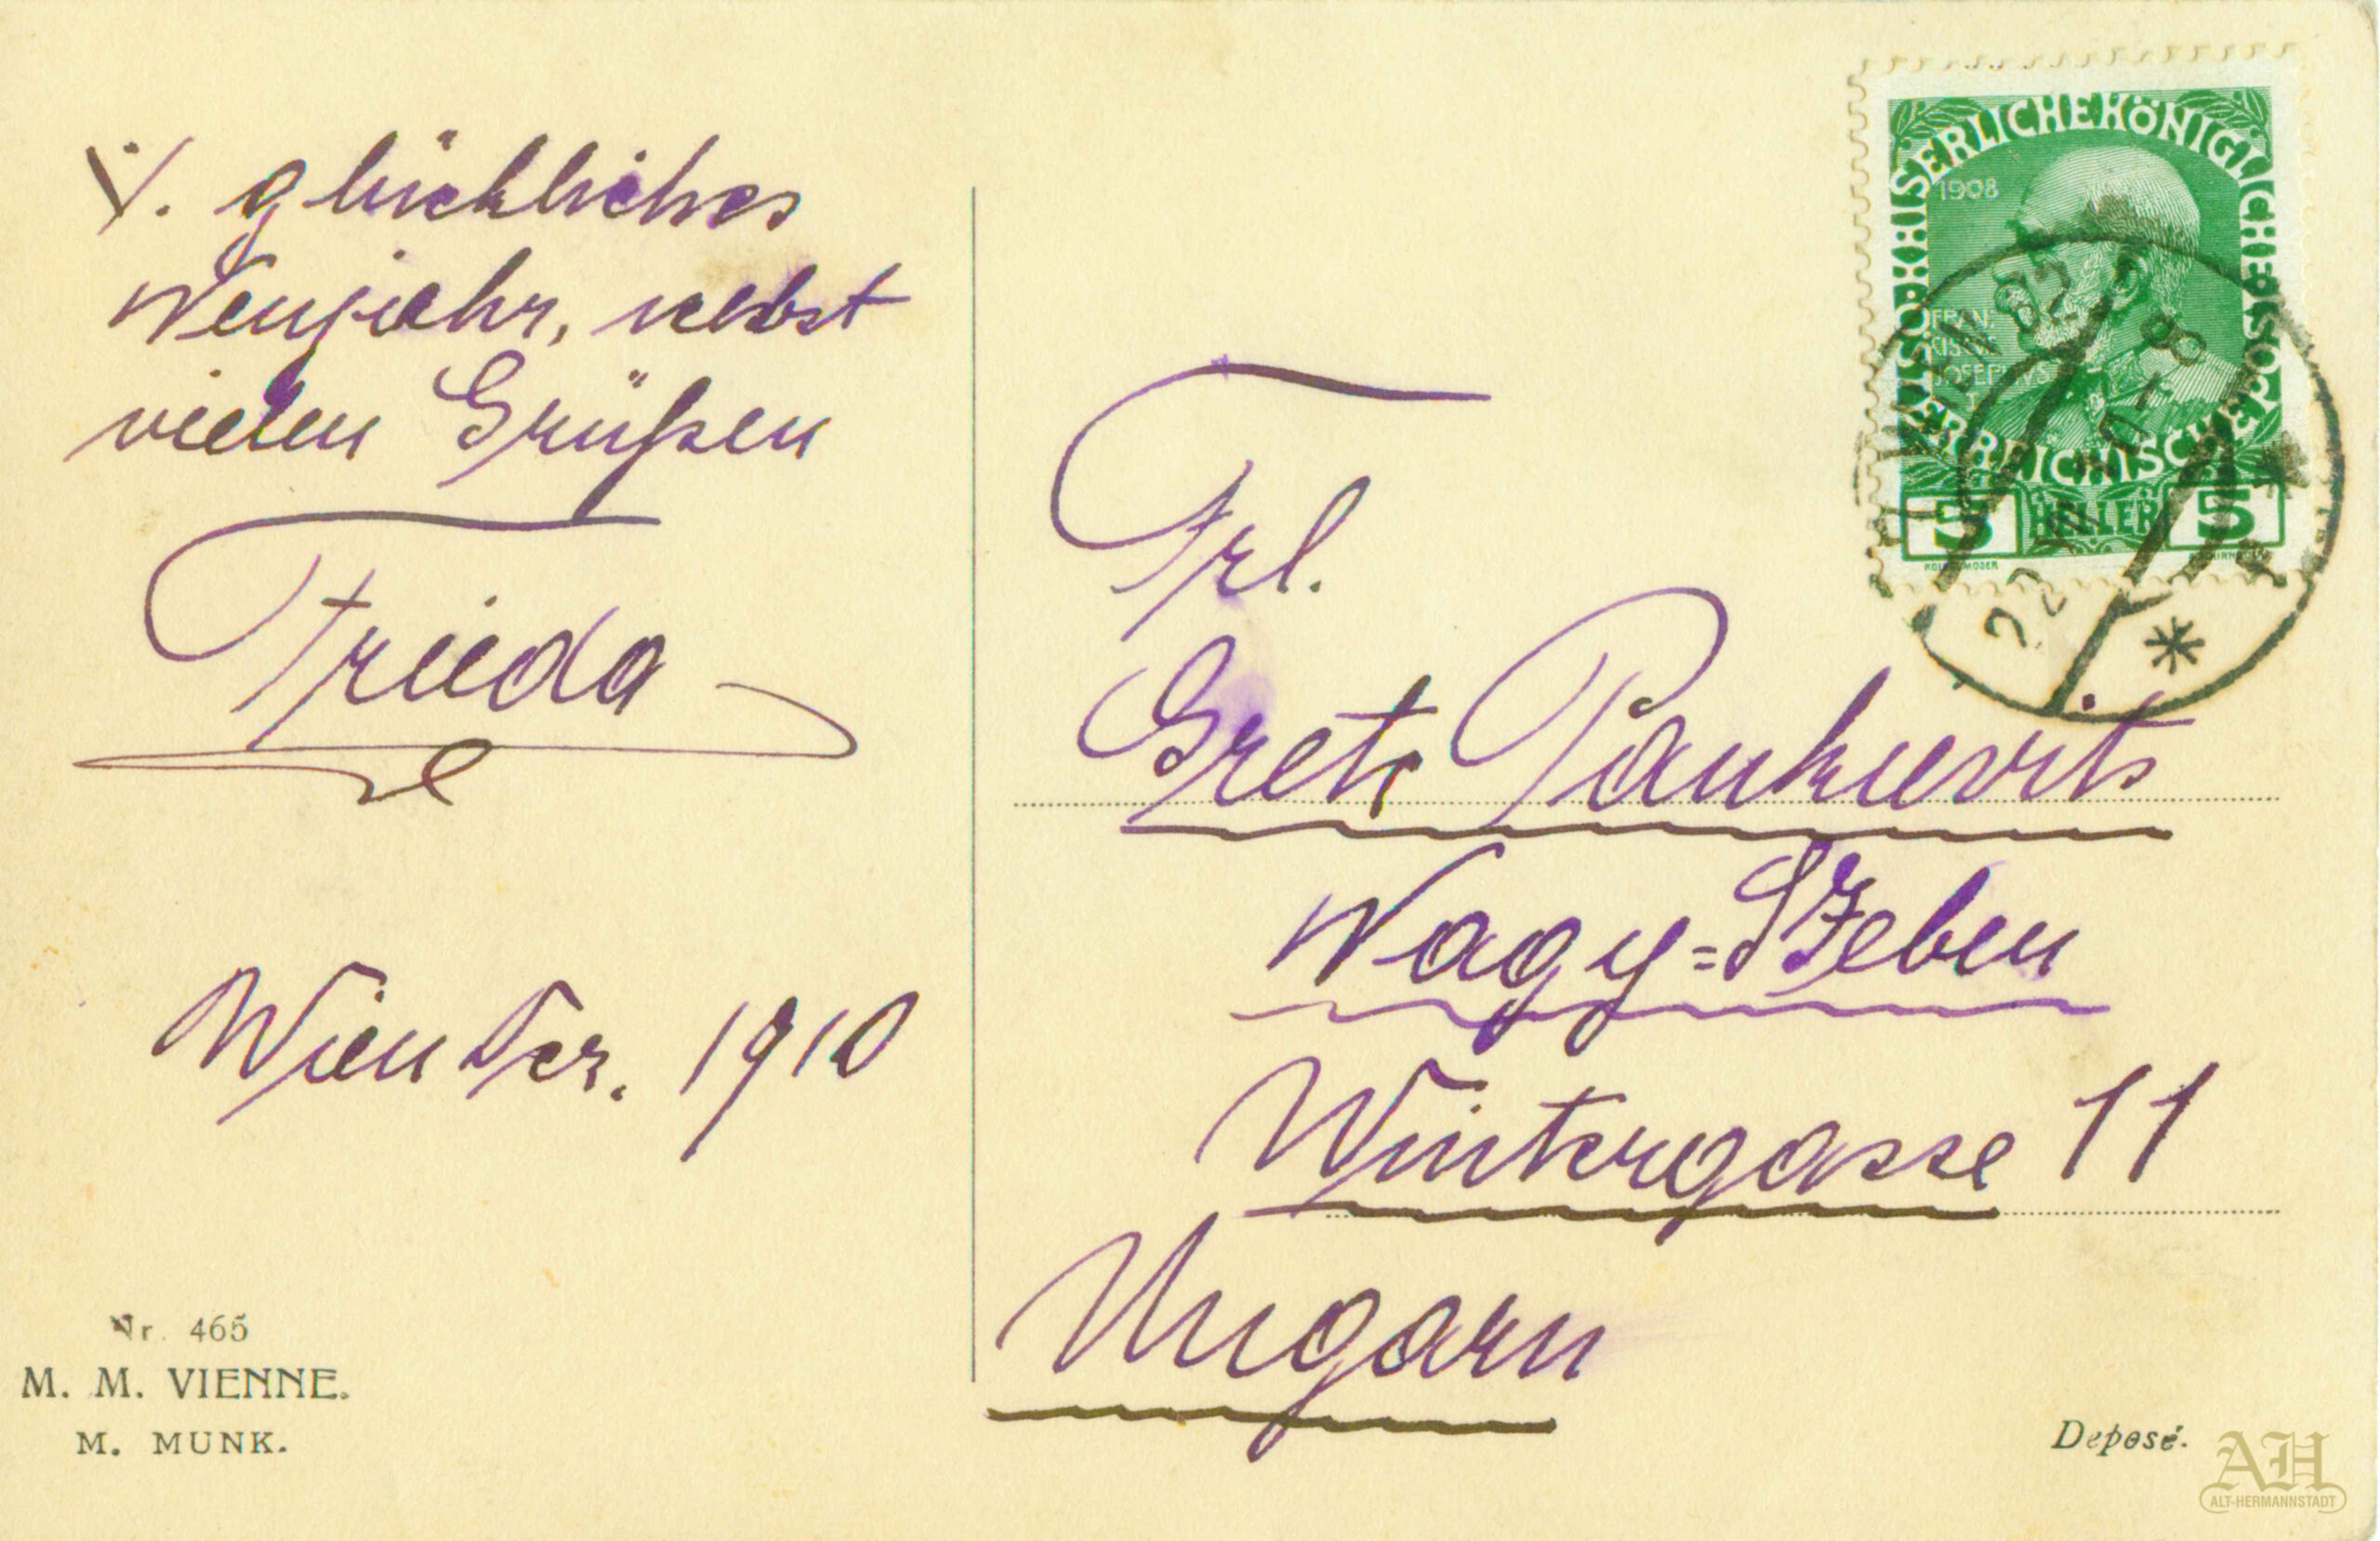 V. glückliches
Neujahr, nebst
vielen Grüßen
Frieda
Wien Dez. 1910
Nr. 465
M. M. VIENNE.
M. MUNK.
KAISERLICHE KÖNIGLICHE ÖSTERREICHISCHE POST
1908
5 HELLER 5
WIEN 62
Frl.
Grete Pankievits
Nagy=Szeben
Wintergasse 11
Ungarn
Deposé.
AH
ALT-HERMANNSTADT